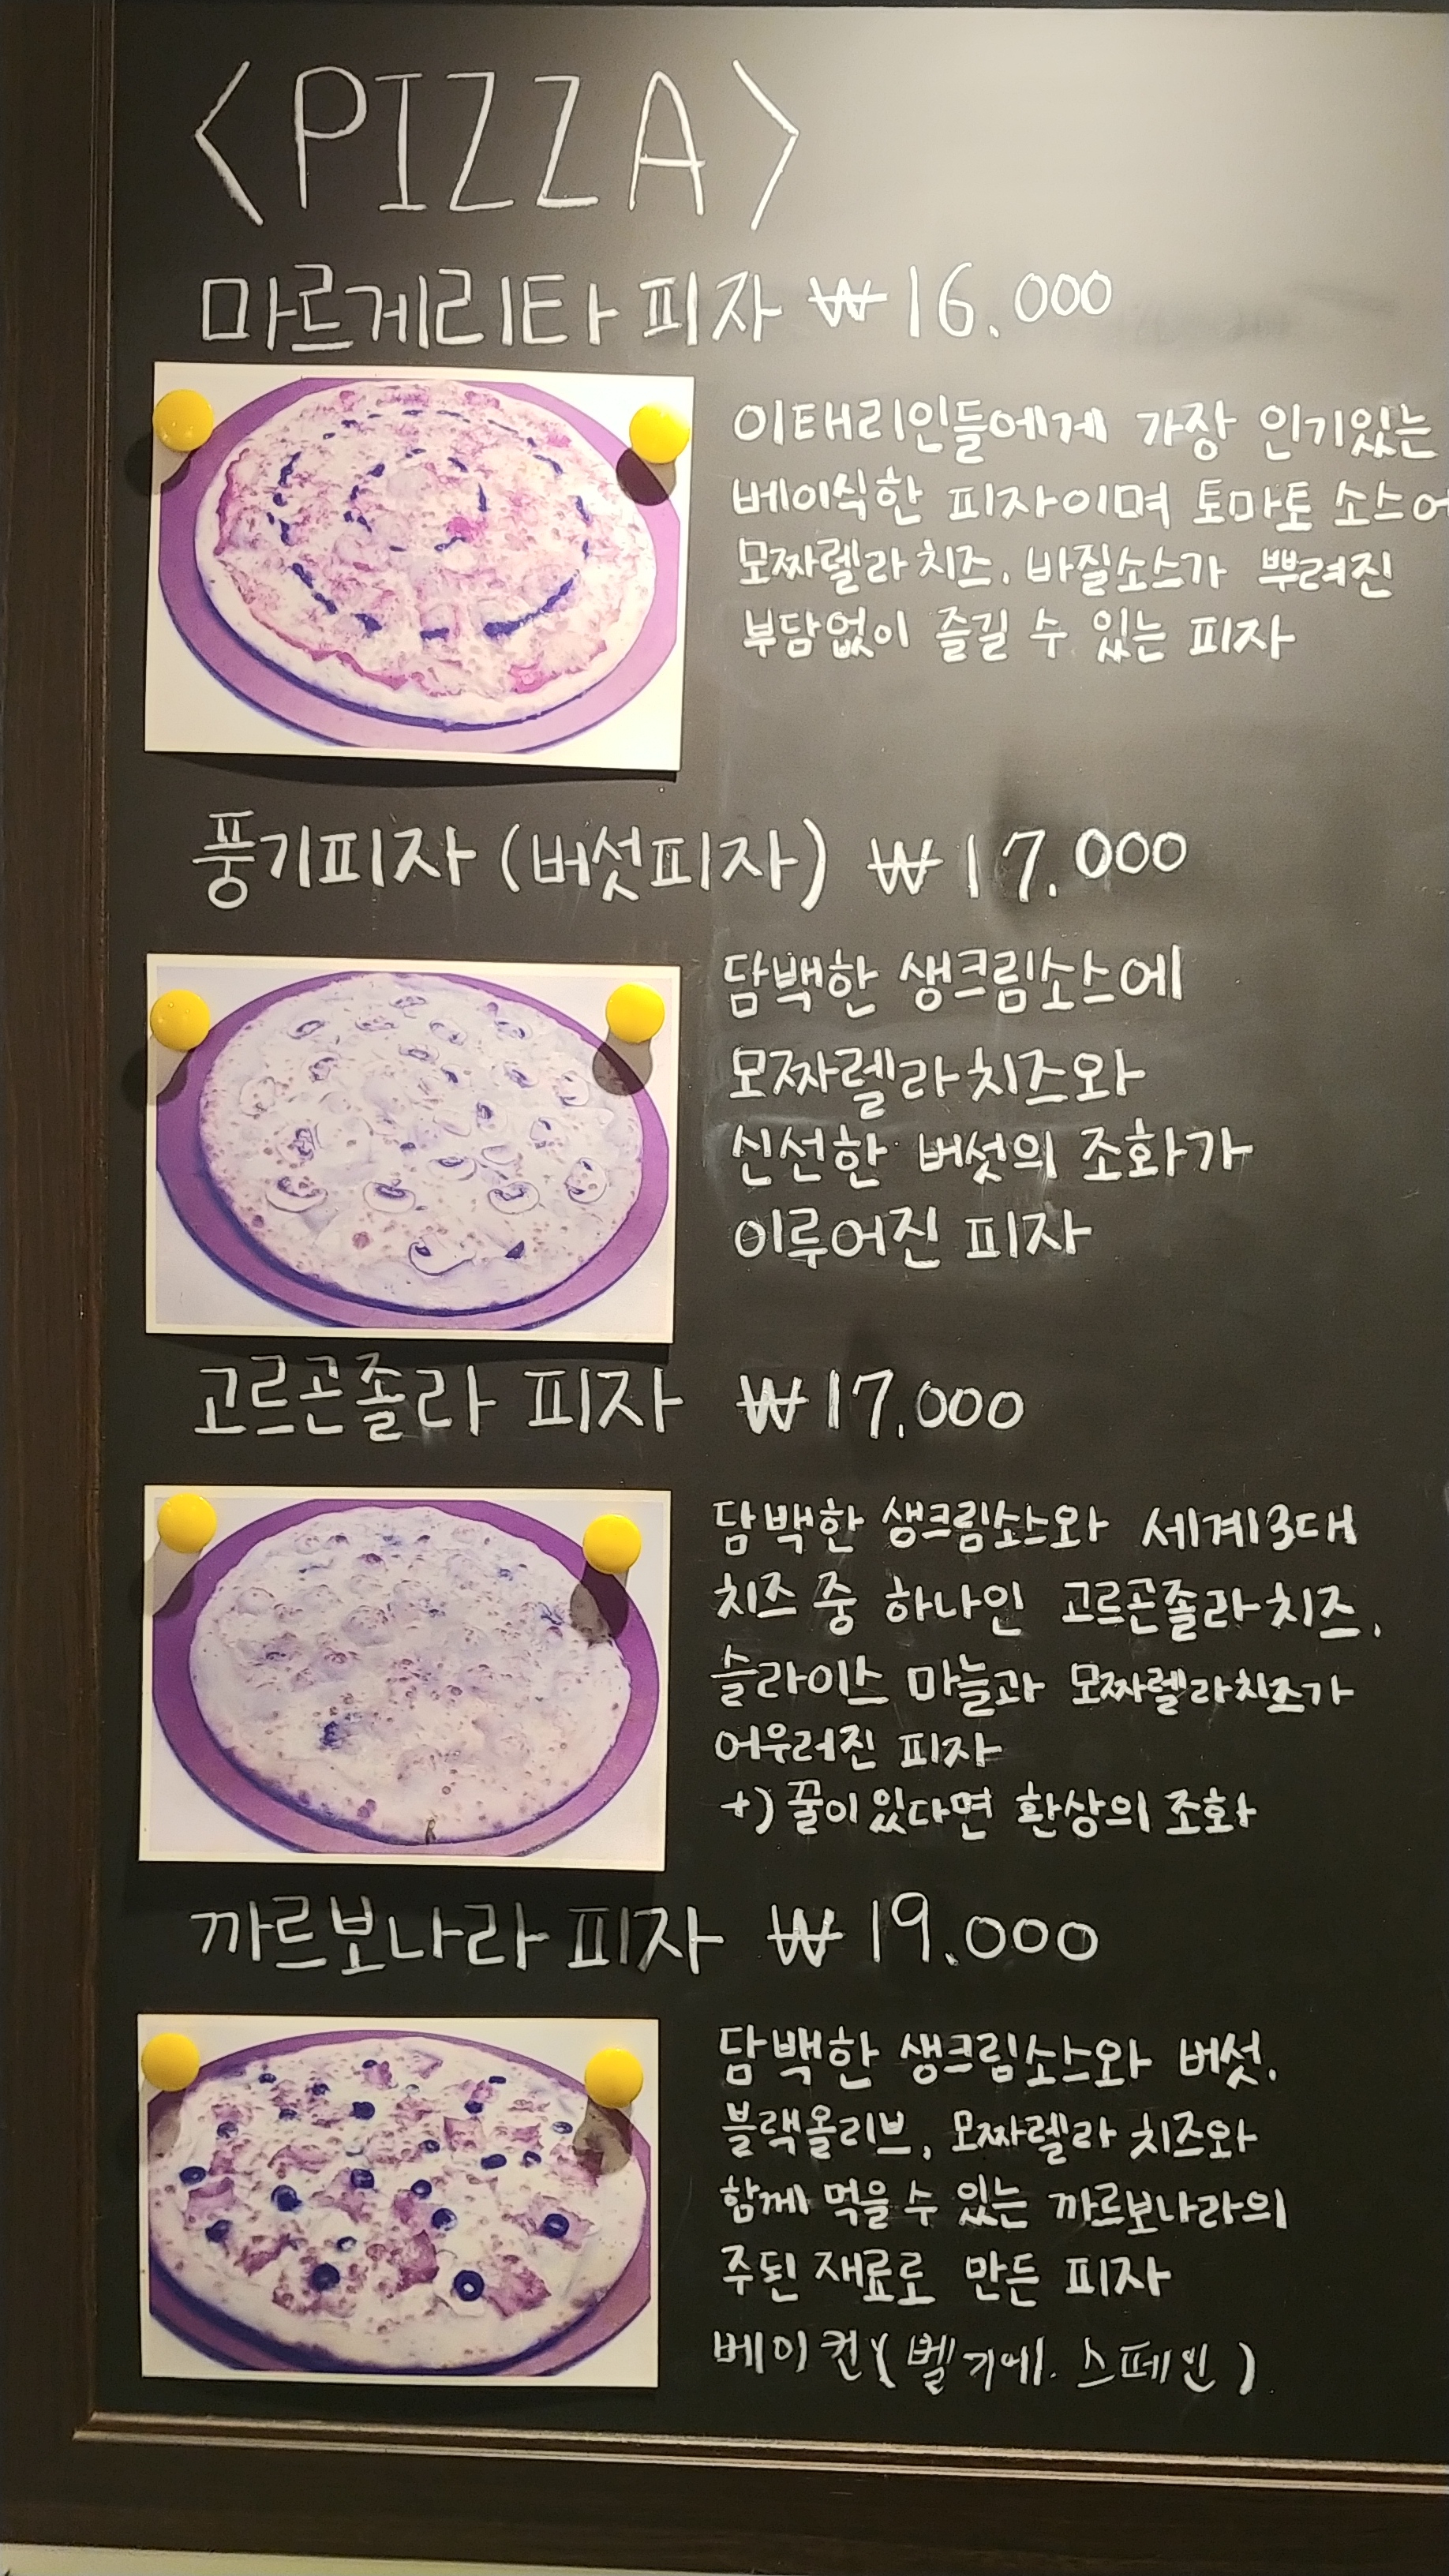 <PIZZA>
마르게리타 피자 ₩16.000
이태리인들에게 가장 인기있는
베이식한 피자이며 토마토 소스에
모짜렐라 치즈, 바질소스가 뿌려진
부담없이 즐길 수 있는 피자
풍기피자 (버섯피자) ₩17.000
담백한 생크림소스에
모짜렐라 치즈와
신선한 버섯의 조화가
이루어진 피자
고르곤졸라 피자 ₩17,000
담백한 생크림소스와 세계3대
치즈 중 하나인 고르곤졸라 치즈,
슬라이스 마늘과 모짜렐라치즈가
어우러진 피자
+) 꿀이 있다면 환상의 조화
까르보나라 피자 ₩19.000
담백한 생크림소스와 버섯,
블랙올리브, 모짜렐라 치즈와
함께 먹을 수 있는 까르보나라의
주된 재료로 만든 피자
베이컨 (벨기에. 스페인)